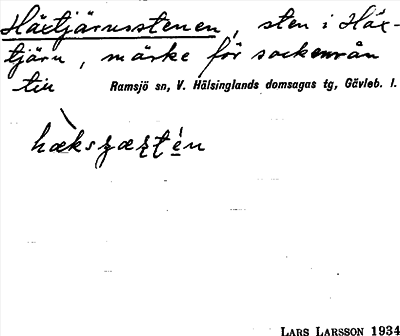 Häxtjärnsstenen, sten i Häx-
tjärn, märke för sockenrån
till Ramsjö sn, V. Hälsinglands domsagas tg, Gävleb. l.
LARS LARSSON 1934